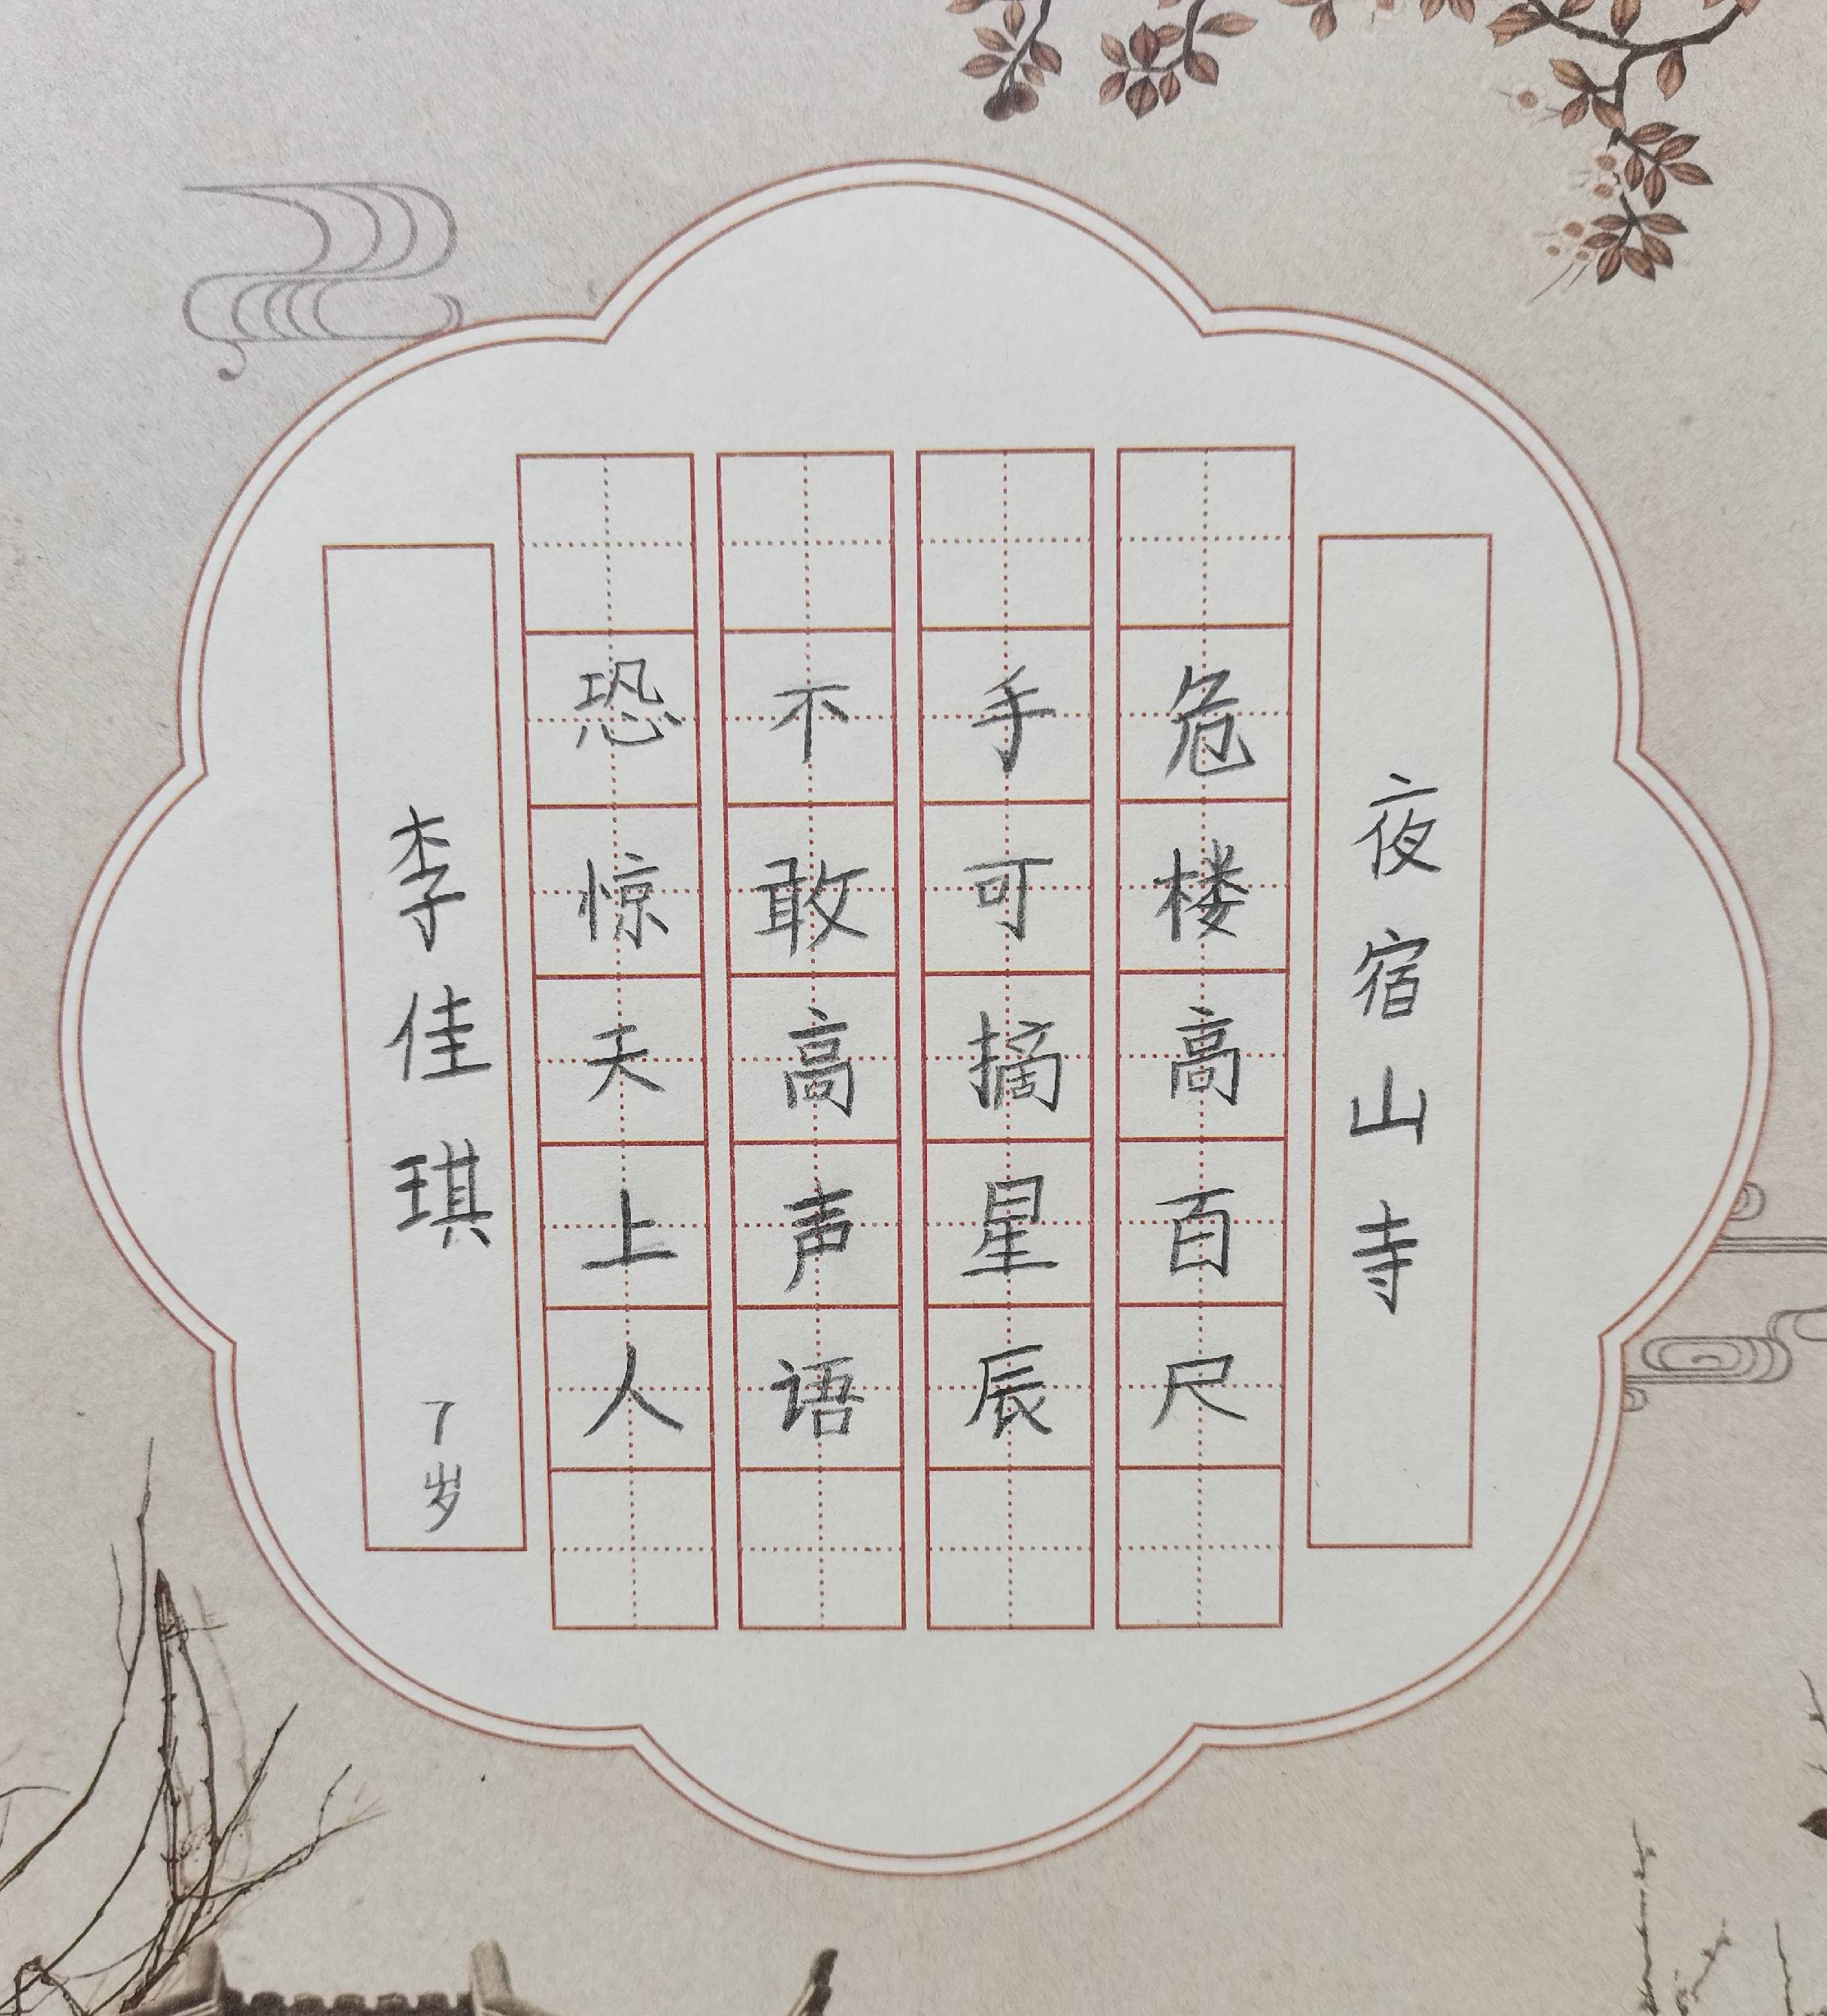 夜宿山寺
危楼高百尺
手可摘星辰
不敢高声语
恐惊天上人
李佳琪 7岁